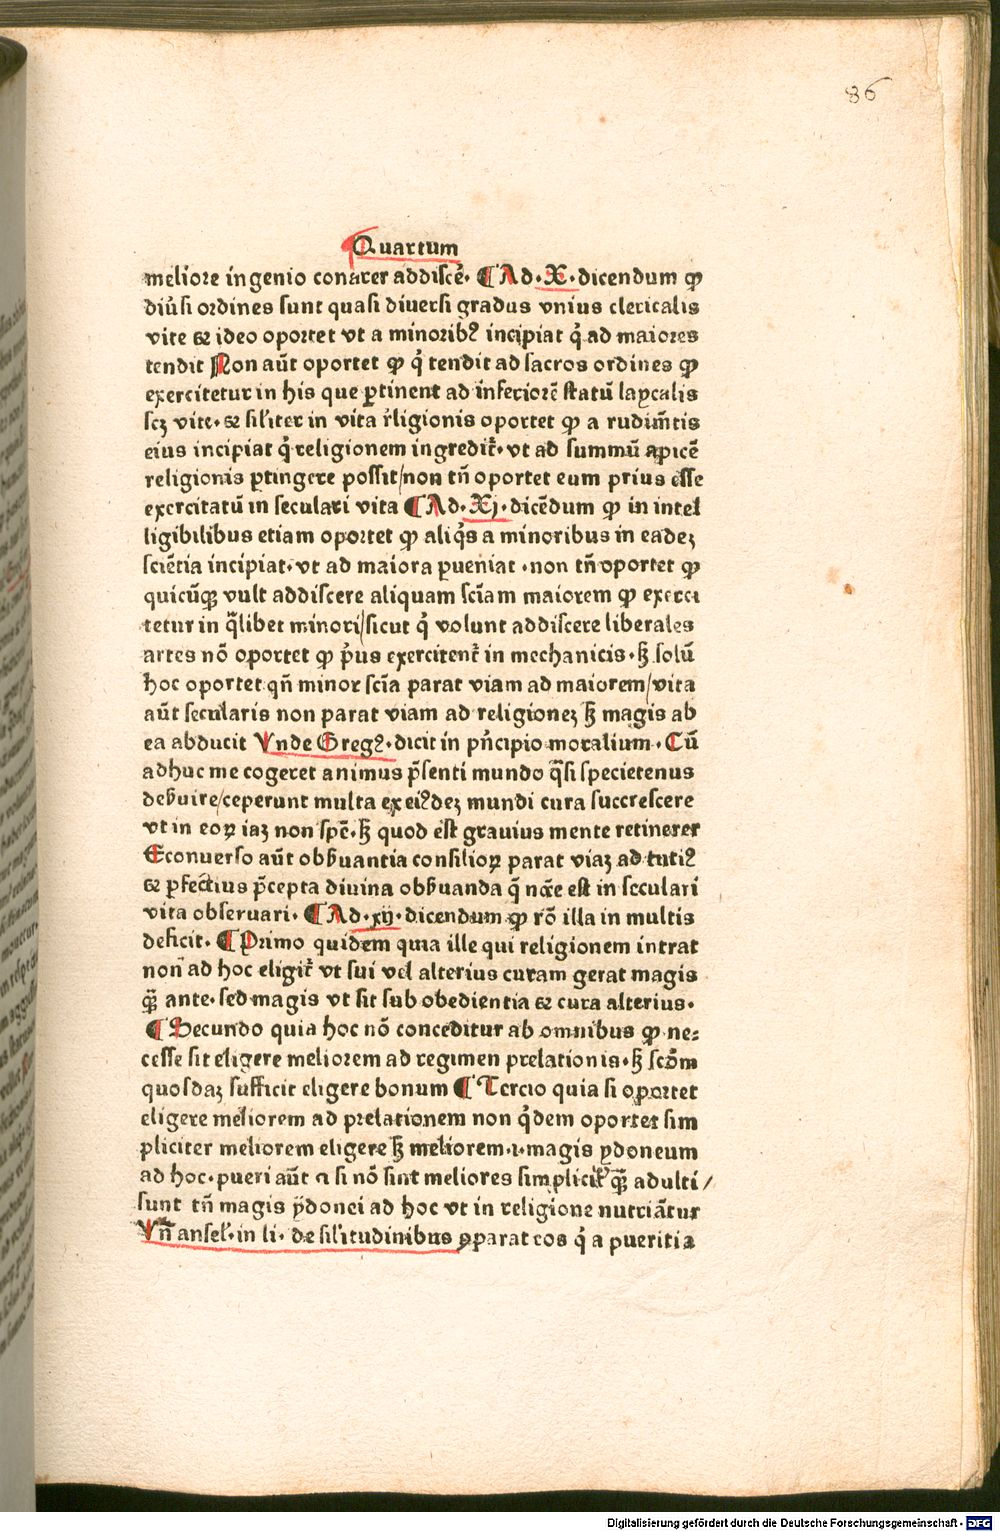 86
Quartum
meliore ingenio conarer addiscē. ¶ Ad.X.dicendum ꝙ
diu̓si ordines sunt quasi diuersi gradus vnius clericalis
vite ⁊ ideo oportet vt a minoribꝰ incipiat q̇ ad maiores
tendit Non aūt oportet ꝙ q̇ tendit ad sacros ordines ꝙ
exercitetur in his que ꝑtinent ad inferiorē statū laycalis
scꝫ vite. ⁊ sil̓iter in vita r̓ligionis oportet ꝙ a rudim̄tis
eius incipiat q̇ religionem ingredit̓. vt ad summū apicē
religionis ꝑtingere possit/non tn̄ oportet eum prius esse
exercitatū in seculari vita ¶ Ad.Xj.dicēdum ꝙ in intel
ligibilibus etiam oportet ꝙ aliq̇s a minoribus in eadeꝫ
sciētia incipiat. vt ad maiora ꝑueniat .non tn̄ oportet ꝙ
quicūqꝫ vult addiscere aliquam sciām maiorem ꝙ exerci
tetur in q̄libet minori/sicut q̇ volunt addiscere liberales
artes nō oportet ꝙ p̓us exercitent̓ in mechanicis.ꜩ solū
hoc oportet qn̄ minor scīa parat viam ad maiorem/vita
aūt secularis non parat viam ad religioneꝫ ꜩ magis ab
ea abducit Vnde Gregꝰ.dicit in pn̄cipio moralium. Cū
adhuc me cogeret animus p̄senti mundo q̄si specietenus
debuire/ceperunt multa ex eiꝰdeꝫ mundi cura succrescere
vt in eoꝝ iaꝫ non spē.ꜩ quod est grauius mente retinerer
Econuerso aūt obẜuantia consilioꝝ parat viaꝫ ad tutiꝰ
⁊ ꝑfectius p̄cepta diuina obẜuanda q̄ nc̄e est in seculari
vita obseruari. ¶ Ad.xij.dicendum ꝙ rō illa in multis
deficit. ¶ Primo quidem quia ille qui religionem intrat
non ad hoc eligit̓ vt sui vel alterius curam gerat magis
qꝫ̄ ante. sed magis vt sit sub obedientia ⁊ cura alterius.
¶ Secundo quia hoc nō conceditur ab omnibus ꝙ ne⸗
cesse sit eligere meliorem ad regimen prelationis.ꜩ scōm
quosdaꝫ sufficit eligere bonum ¶ Tercio quia si oportet
eligere meliorem ad prelationem non q̇dem oportet sim
pliciter meliorem eligere ꜩ meliorem.i.magis ydoneum
ad hoc. pueri aūt si nō sint meliores simplicit̓ qꝫ̄ adulti/
sunt tn̄ magis ydonei ad hoc vt in religione nutriātur
Vn̄ ansel̓.in li. de sil̓itudinibus ꝯparat eos q̇ a pueritia
Digitalisierung gefördert durch die Deutsche Forschungsgemeinschaft - DFG